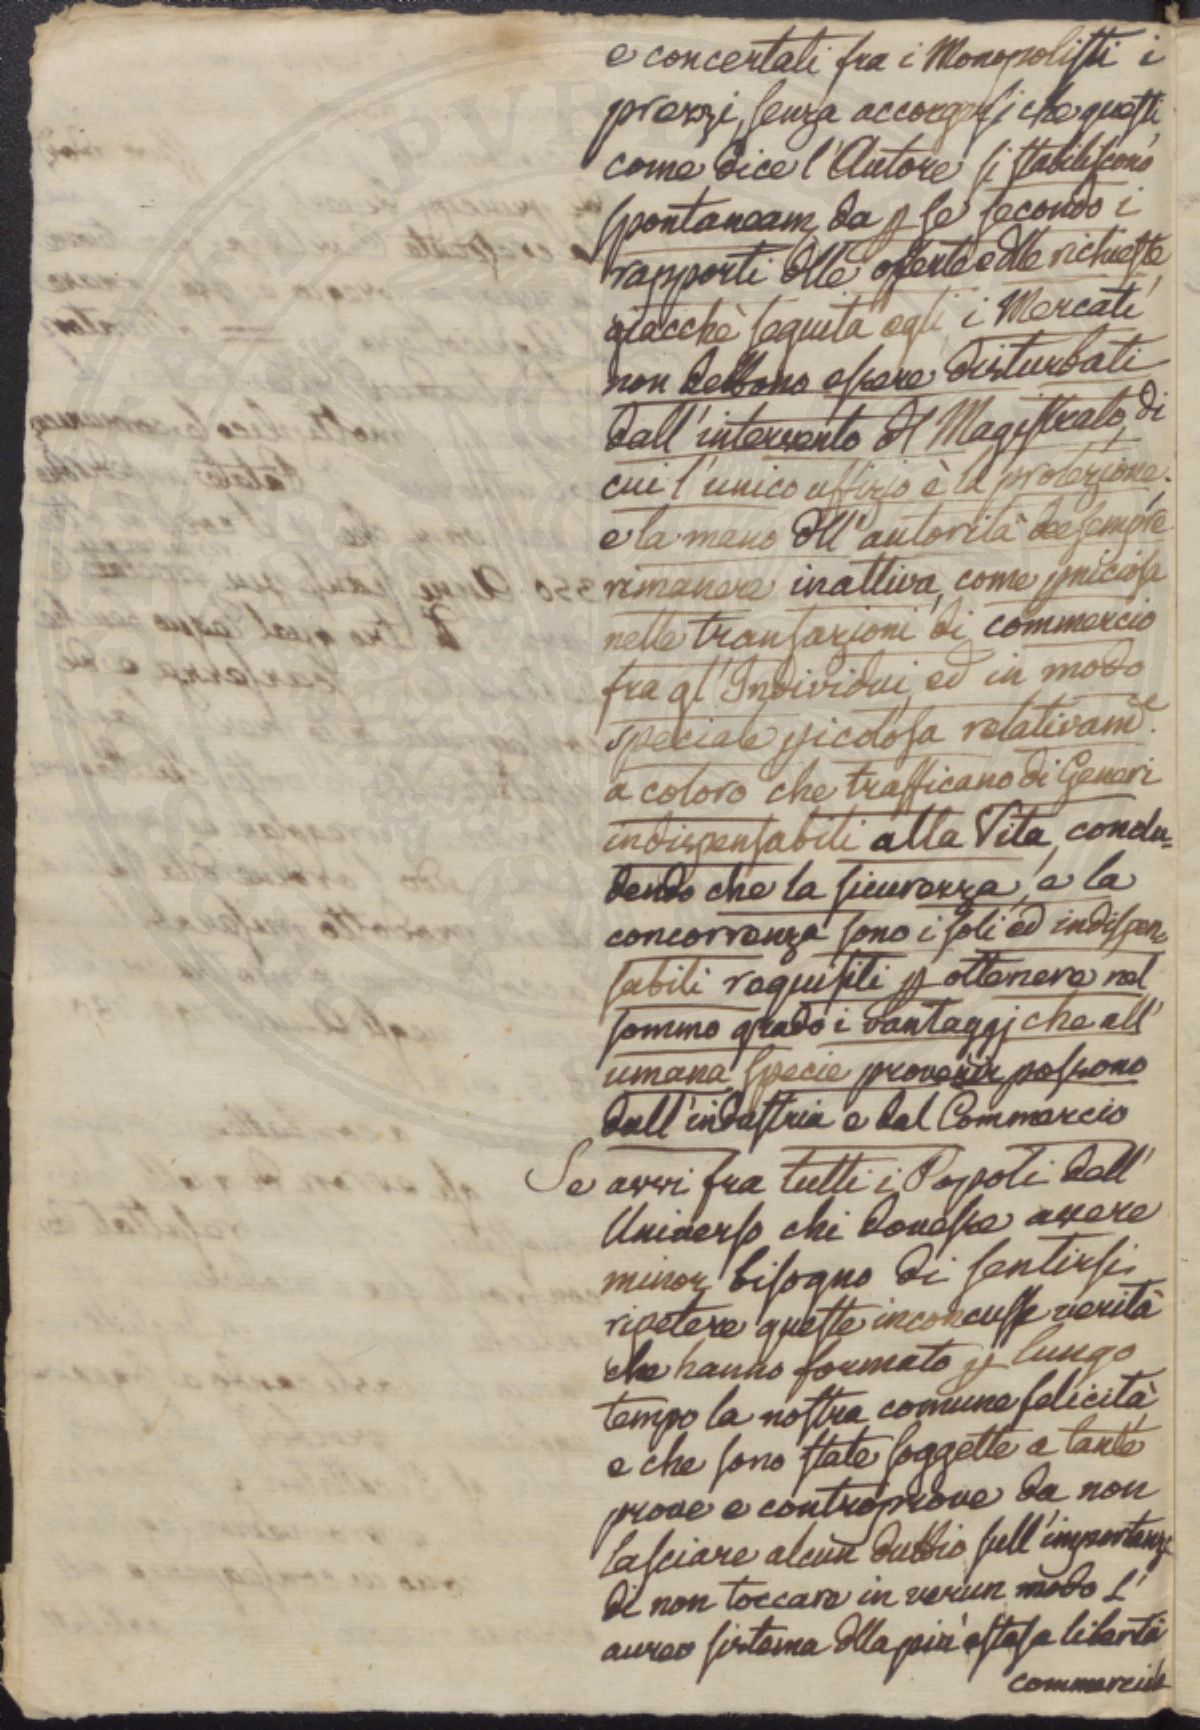 e concertati fra i Monopolisti i
prezzi, senza accorgersi che questi
come dice l'Autore si stabiliscono
spontaneam. da p se secondo i
rapporti dlle offerte e dlle richieste
giacchè seguita egli i Mercati
non debbono essere disturbati
dall'intervento dl Magistrato, di
cui l'unico uffizio è la protezione.
e la mano dll'autorità dee sempre
rimanere inattiva, come pniciosa
nelle transazioni di commercio
fra gl'Individui, ed in modo
speciale picolosa relativam.e
a coloro che trafficano di Generi
indispensabili alla Vita, conclu=
dendo che la sicurezza, e la
concorrenza sono i soli ed indispen=
sabili requisiti p ottenere nel
sommo grado i vantaggj che all'
umana specie provenir possono
dall'industria e dal Commercio
Se avvi fra tutti i Popoli dell'
Universo chi dovesse avere
minor bisogno di sentirsi
ripetere queste inconcusse verità
che hanno formato p lungo
tempo la nostra comune felicità
e che sono state soggette a tante
prove e controprove da non
lasciare alcun dubbio sull'importanza
di non toccare in verun modo l'
aureo sistema dlla più estesa libertà
commerciale